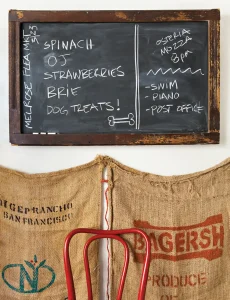 MELROSE FLEA MKT
5/23
SPINACH
OJ
STRAWBERRIES
BRIE
DOG TREATS!
OSTERIA
MOZZA
8PM
-SWIM
-PIANO
-POST OFFICE
RANCHO
SAN FRANCISCO
BAGERSH
PRODUCE